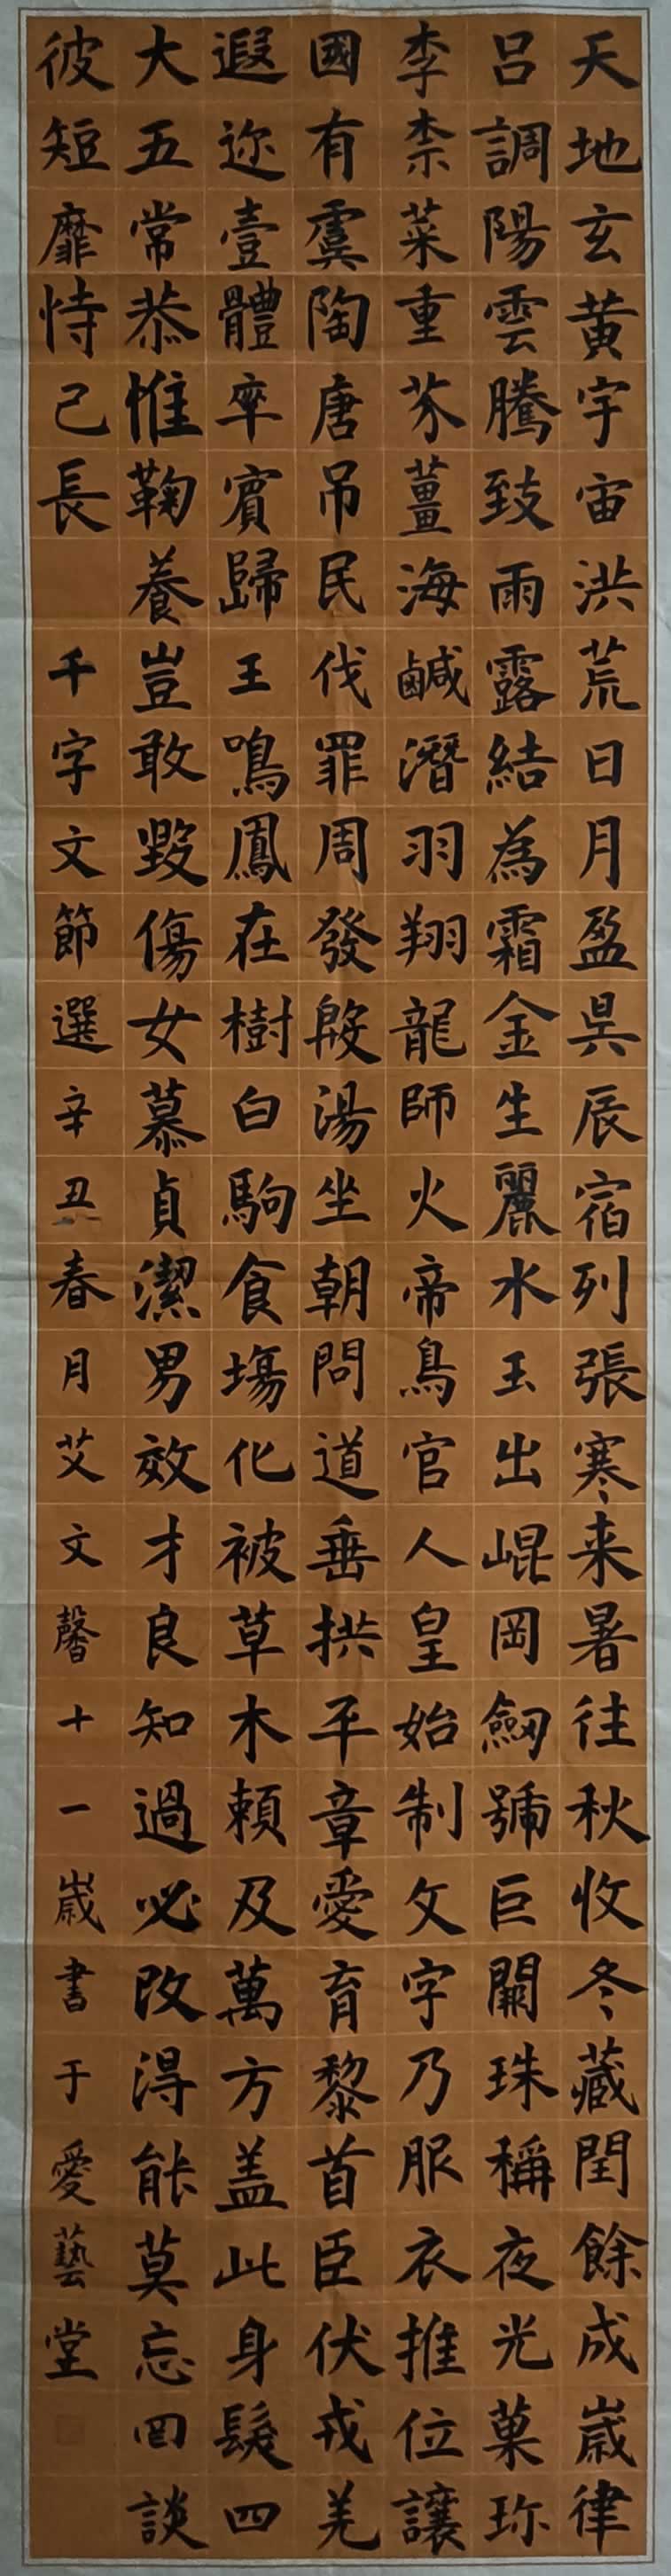 天地玄黄宇宙洪荒日月盈昃辰宿列張寒来暑往秋收冬藏閏餘成歲律
吕調陽雲騰致雨露結為霜金生麗水玉出崐岡劒號巨闕珠稱夜光菓珎
李柰菜重芥薑海鹹潛羽翔龍師火帝鳥官人皇始制文字乃服衣推位讓
國有虞陶唐吊民伐罪周發殷湯坐朝問道垂拱平章愛育黎首臣伏戎羌
遐迩壹體率賓歸王鳴鳳在樹白駒食場化被草木賴及萬方盖此身髮四
大五常恭惟鞠養豈敢毀傷女慕貞潔男效才良知過必改得能莫忘罔談
彼短靡恃己長
千字文節選辛丑春月艾文馨十一歲書于愛藝堂